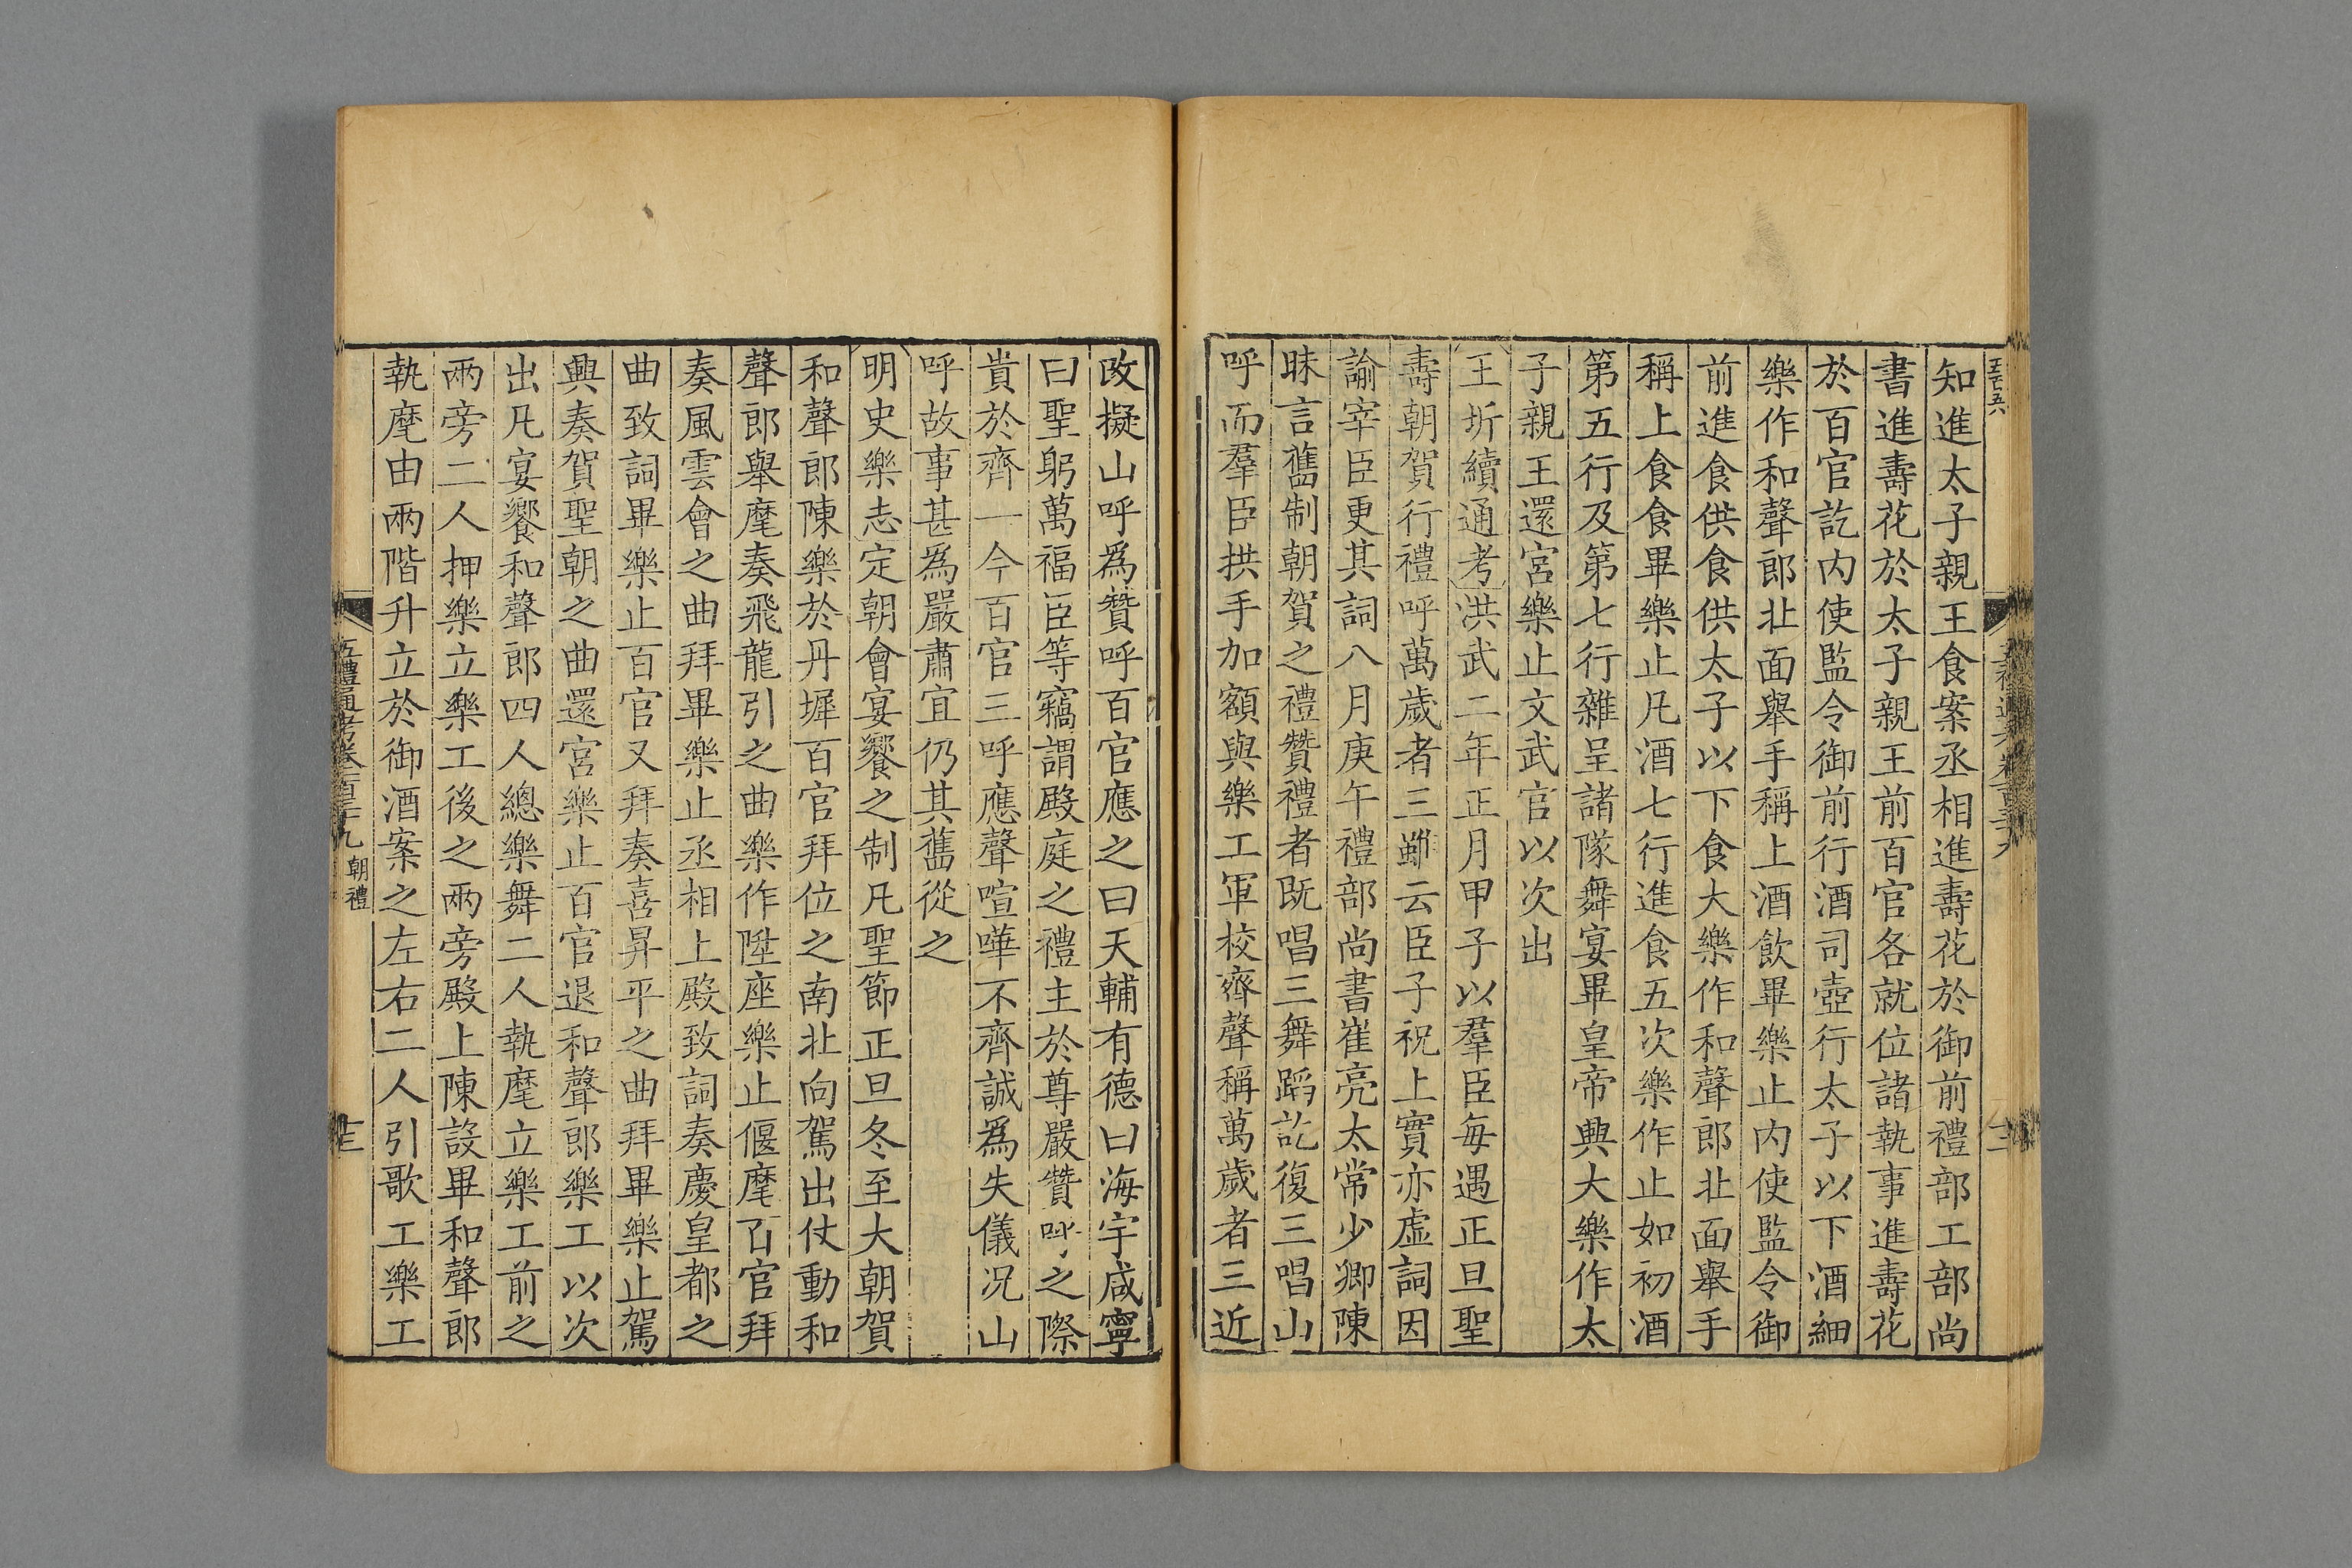 知進太子親王食案丞相進壽花於御前禮部工部尚
書進壽花於太子親王前百官各就位諸執事進壽花
於百官訖内使監令御前行酒司壺行太子以下酒細
樂作和聲郎北面舉手稱上酒飲畢樂止内使監令御
前進食供食供太子以下食大樂作和聲郎北面舉手
稱上食食畢樂止凡酒七行進食五次樂作止如初酒
第五行及第七行雜呈諸隊舞宴畢皇帝興大樂作太
子親王還宮樂止文武官以次出
王圻續通考洪武二年正月甲子以羣臣每遇正旦聖
壽朝賀行禮呼萬歲者三乃云臣子祝上實亦虛詞因
諭宰臣更其詞八月庚午禮部尚書崔亮太常少卿陳
昧言舊制朝賀之禮贊禮者既唱三舞蹈訖復三唱山
呼而羣臣拱手加額與樂工軍校齊聲稱萬歲者三近
改擬山呼爲贊呼百官應之曰天輔有德曰海宇咸寧
曰聖躬萬福臣等竊謂殿庭之禮主於尊嚴贊呼之際
貴於齊一今百官三呼應聲喧嘩不齊誠爲失儀况山
呼故事甚爲嚴肅宜仍其舊從之
明史樂志定朝會宴饗之制凡聖節正旦冬至大朝賀
和聲郎陳樂於丹墀百官拜位之南北向駕出仗動和
聲郎舉麾奏飛龍引之曲樂作陞座樂止偃麾百官拜
奏風雲會之曲拜畢樂止丞相上殿致詞奏慶皇都之
曲致詞畢樂止百官又拜奏喜昇平之曲拜畢樂止駕
興奏賀聖朝之曲還宮樂止百官退和聲郎樂工以次
出凡宴饗和聲郎四人總樂舞二人執麾立樂工前之
兩旁二人押樂立樂工後之兩旁殿上陳設畢和聲郎
執麾由兩階升立於御酒案之左右二人引歌工樂工
五禮通考卷一百三十九 朝禮